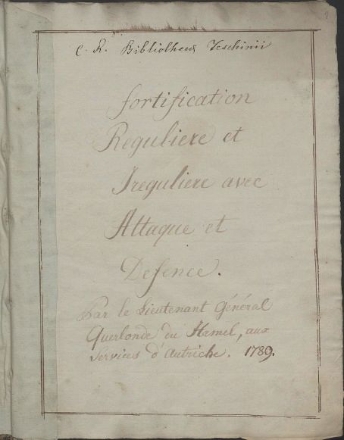 C. R. Bibliothecæ Teschinii
fortification
Reguliere et
Ireguliere avec
Attaque et
Defence.
Par le Lieutenant Général
Querlonde du Hamel, aux
Servins d'Autriche. 1789.